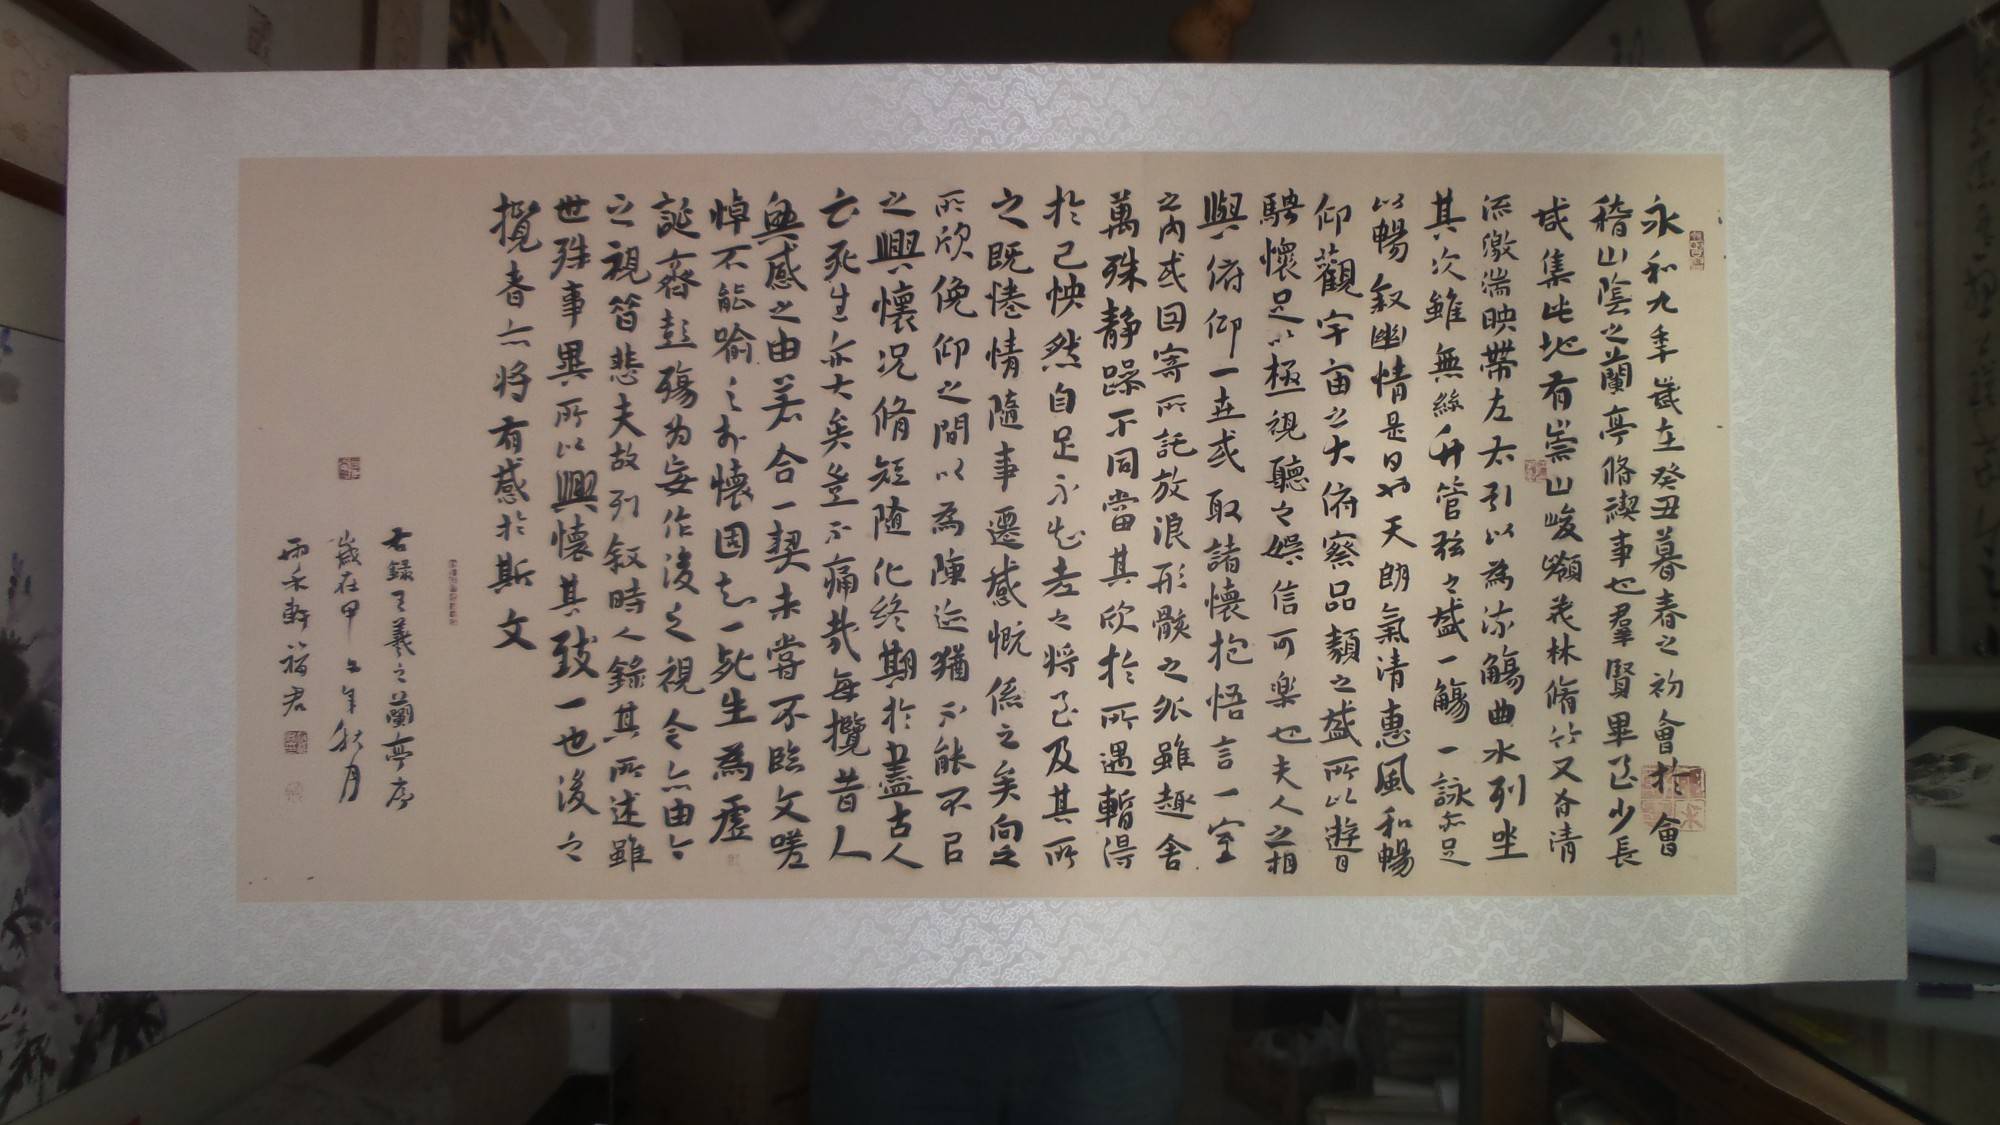 永和九年歲在癸丑暮春之初會於會
稽山陰之蘭亭脩禊事也羣賢畢至少長
咸集此地有崇山峻嶺茂林脩竹又有清
流激湍映帶左右引以為流觴曲水列坐
其次雖無絲竹管弦之盛一觴一詠亦足
以暢叙幽情是日也天朗氣清惠風和暢
仰觀宇宙之大俯察品類之盛所以遊目
騁懷足以極視聽之娛信可樂也夫人之相
與俯仰一世或取諸懷抱悟言一室
之內或因寄所託放浪形骸之外雖趣舍
萬殊靜躁不同當其欣於所遇暫得
於己怏然自足不知老之將至及其所
之既惓情隨事遷感慨係之矣向之
所欣俛仰之間以為陳迹猶不能不以
之興懷況脩短隨化終期於盡古人
云死生亦大矣豈不痛哉每攬昔人
興感之由若合一契未嘗不臨文嗟
悼不能喻之於懷固知一死生為虛
誕齊彭殤為妄作後之視今亦由今
之視昔悲夫故列叙時人錄其所述雖
世殊事異所以興懷其致一也後之
攬者亦將有感於斯文
右錄王羲之蘭亭序
歲在甲午年秋月
雨禾軒福君